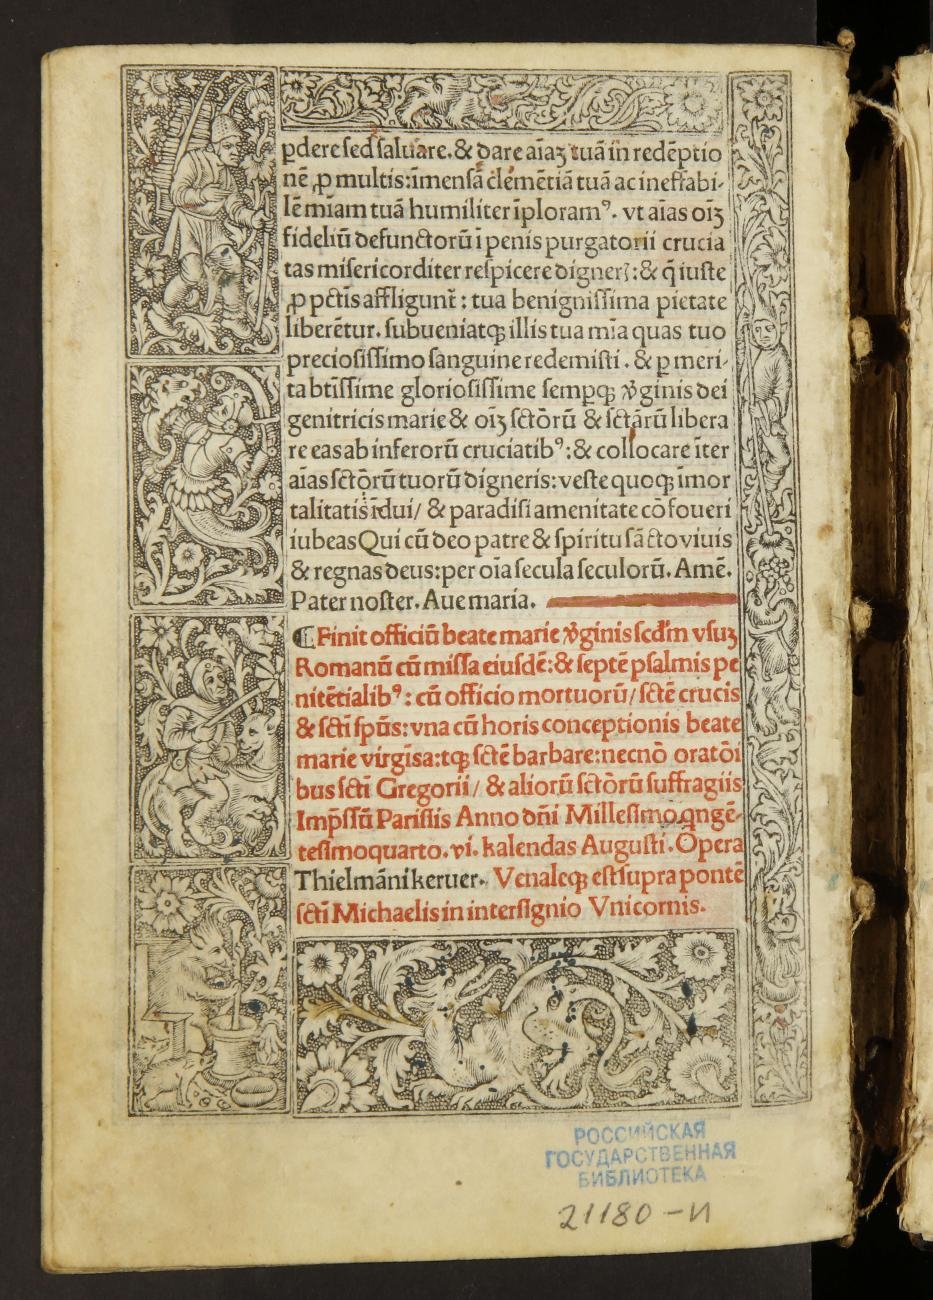 ꝑdere sed saluare. & dare aīaꝫ tuā in redēptio
nē ꝓ multis: īmensā clemētiā tuā ac ineffabi-
lē mīam tuā humiliter īploramꝰ. vt aīas oīꝫ
fideliū defunctorū ī penis purgatorii crucia
tas misericorditer respicere digneꝛꝭ: & q̄ iuste
ꝓ pctīs affligunt̄: tua benignissima pietate
liberētur. subueniatqꝫ illis tua mīa quas tuo
preciosissimo sanguine redemisti. & ꝑ meri-
ta btīssime gloriosissime sempqꝫ ꝟginis dei
genitricis marie & oīꝫ sctōrū & sctārū libera
re eas ab inferorū cruciatibꝰ: & collocare īter
aīas sctōrū tuorū digneris: veste quoqꝫ īmor
talitatis īdui/ & paradisi amenitate cōfoueri
iubeas Qui cū deo patre & spiritu sācto viuis
& regnas deus: per oīa secula seculorū. Amē.
Pater noster. Aue maria.
⸿ Finit officiū beate marie ꝟginis scdm̄ vsuꝫ
Romanū cū missa eiusdē: & septē psalmis pe
nitētialibꝰ: cū officio mortuorū/ sctē crucis
& sctī spūs: vna cū horis conceptionis beate
marie virgīsa: tqꝫ sctē barbare: necnō oratōi
bus sctī Gregorii/ & aliorū sctōrū suffragiis
Imp̄ssū Parisiis Anno dn̄i Millesimoqngē-
tesimoquarto. vi. kalendas Augusti. Opera
Thielmāni keruer. Venaleqꝫ est supra pontē
sctī Michaelis in intersignio Vnicornis.
РОССИЙСКАЯ
ГОСУДАРСТВЕННАЯ
БИБЛИОТЕКА
21180-И